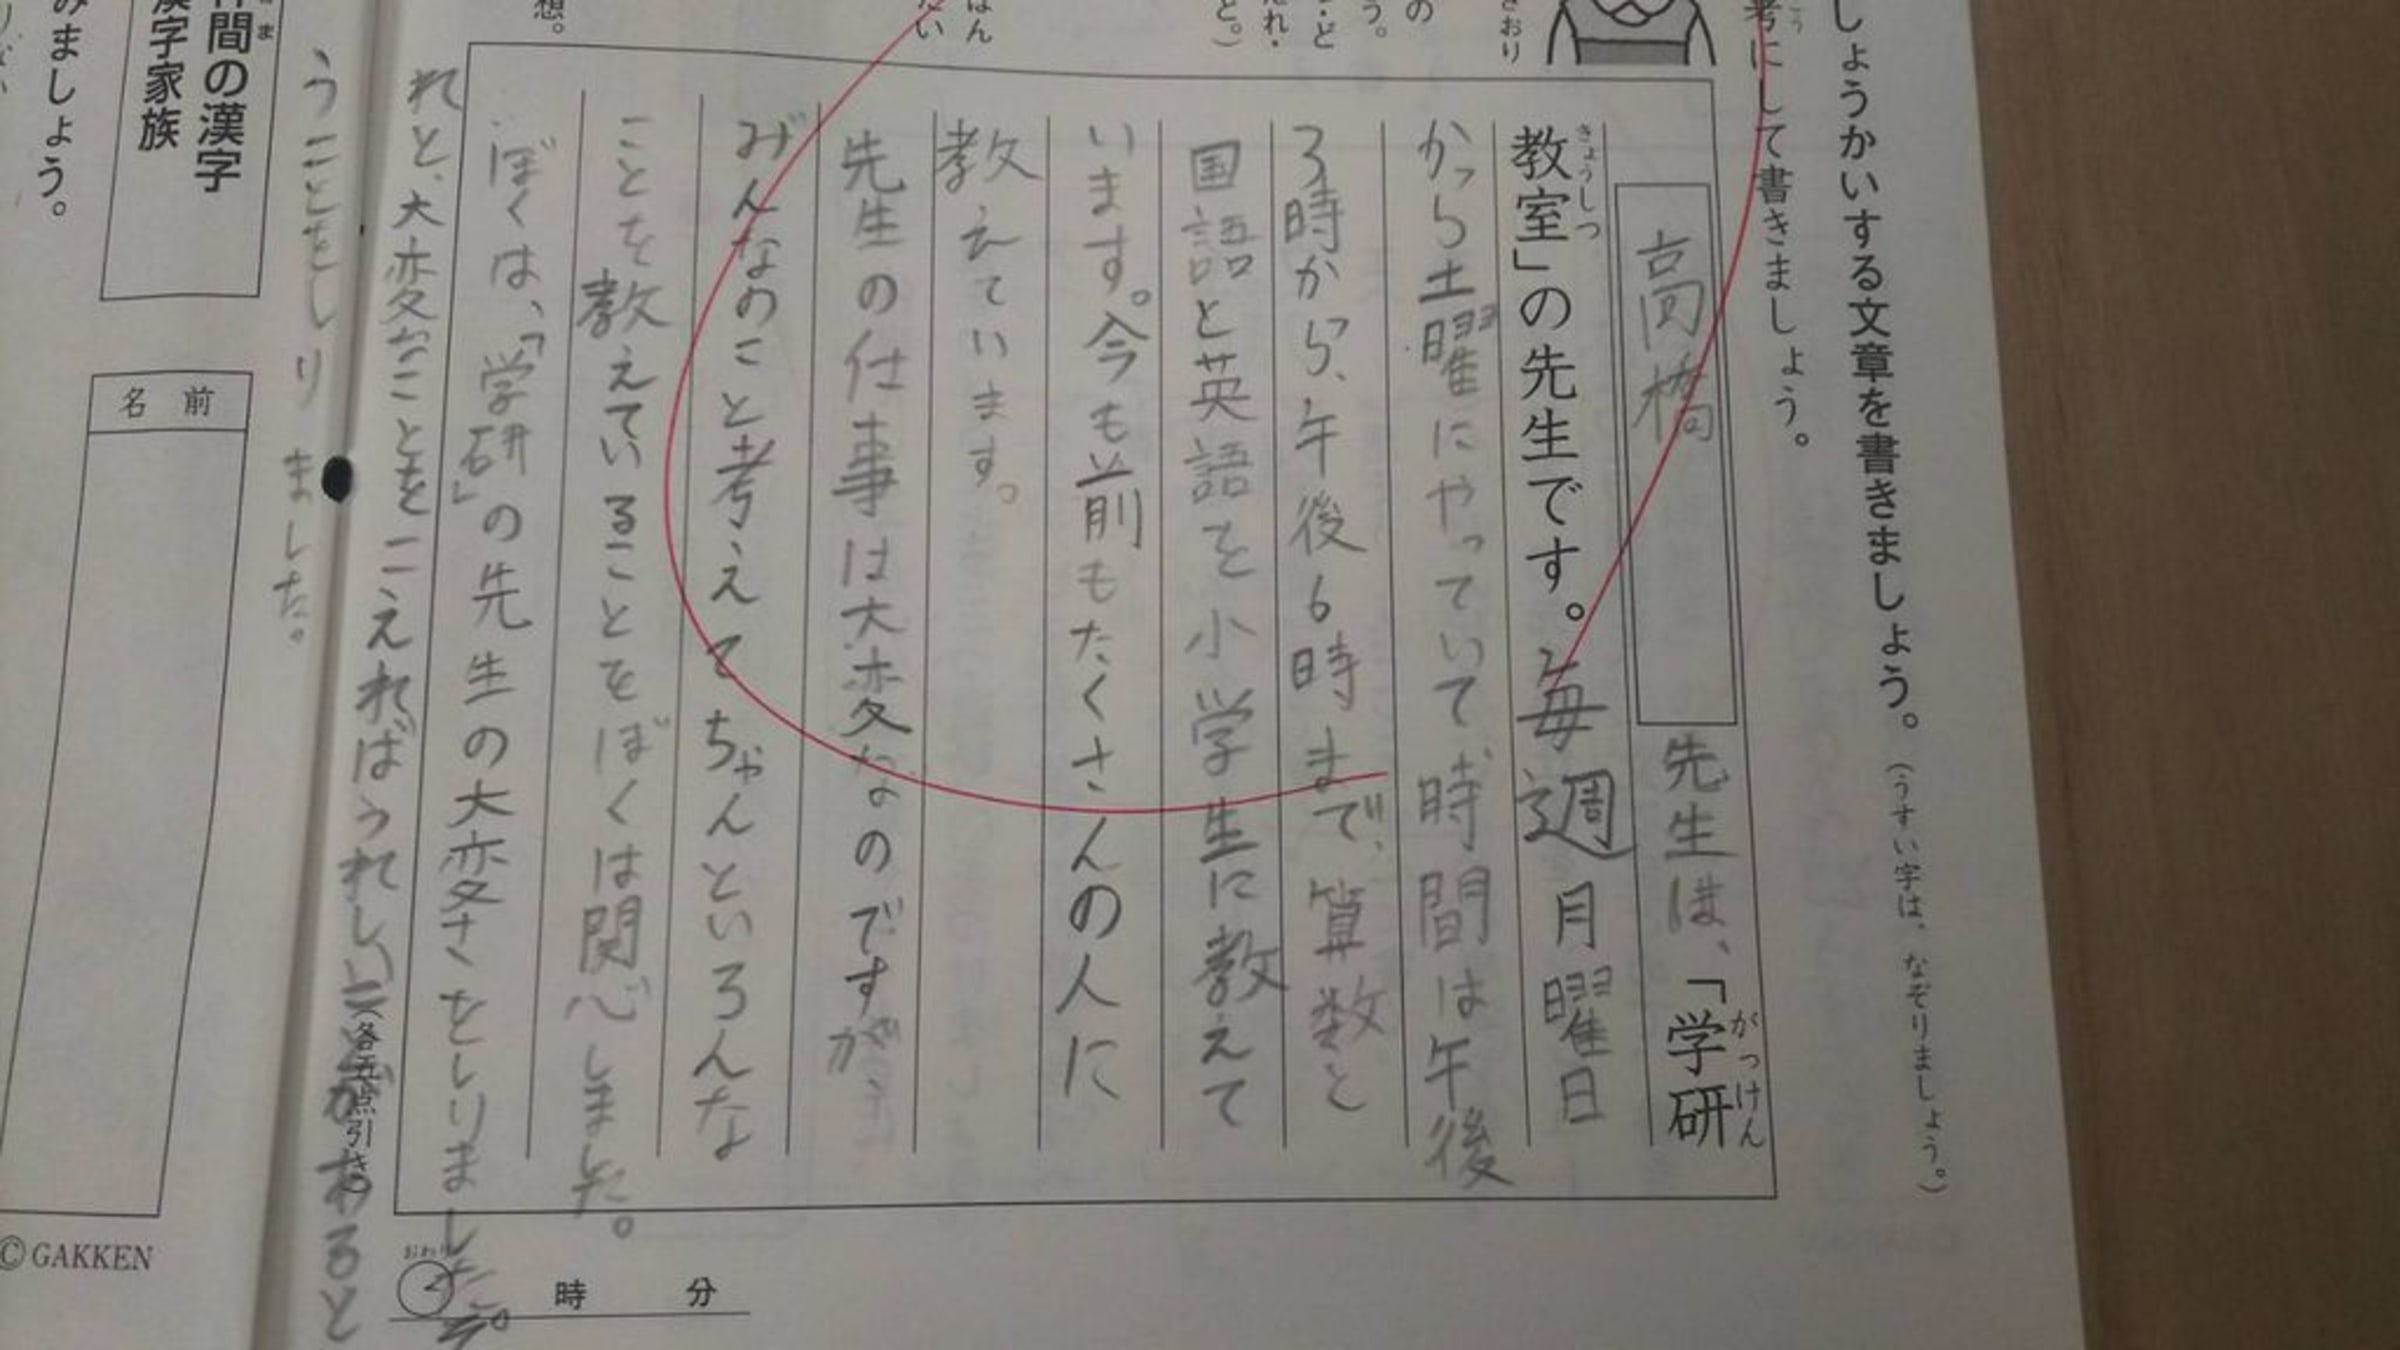 しょうかいする文章を書きましょう。(うすい字は、なぞりましょう。)
考にして書きましょう。
こう
高橋 先生は、「学研
がっけん
教室」の先生です。毎週月曜日
きょうしつ
から土曜にやっていて時間は午後
3時から、午後6時まで、算数と
国語と英語を小学生に教えて
います。今も前もたくさんの人に
教えています。
先生の仕事は大変なのですが、
みんなのこと考えてちゃんといろんな
ことを教えていることをぼくは関心しました。
ぼくは、「学研」の先生の大変さをしりました。
れど、大変なことをこえればうれしいことがあると
うことをしりました。
きおり
の
う。
・ど
だれ・
と。)
はん
たい
想。
(各五点引き)
おわり
時 分
間の漢字
ま
漢字家族
みましょう。
名前
©GAKKEN